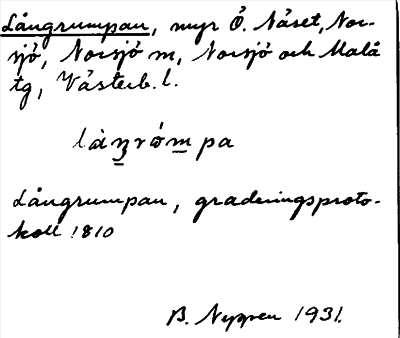 Långrumpan, myr Ö. Näset, Nor-
sjö, Norsjö m, Norsjö och Malå
tg, Västerb. l.
làŋrómpa
Långrumpan, graderingsproto-
koll 1810
B. Nyppen 1931.